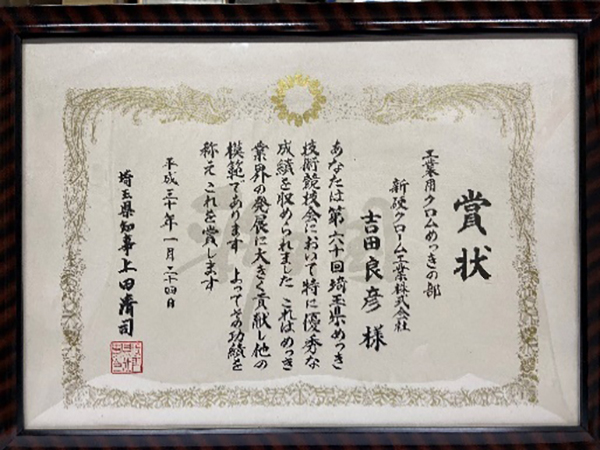 賞状
工業用クロムめっきの部
新硬クローム工業株式会社
吉田良彦 様
あなたは第六十回埼玉県めっき
技術競技会において特に優秀な
成績を収められました これはめっき
業界の発展に大きく貢献し他の
模範であります よってその功績を
称えこれを賞します
平成三十年一月二十四日
埼玉県知事 上田清司